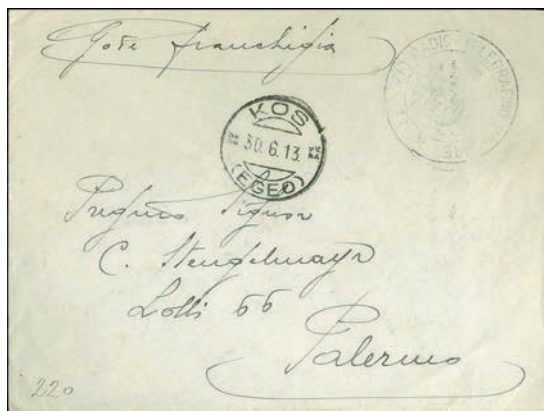 Gode franchigia
RADIOTELEGRAFI
KOS
30.6.13
(EGEO)
Pregmo Signor
C. Stengelmayr
Lolli 66
Palermo
220